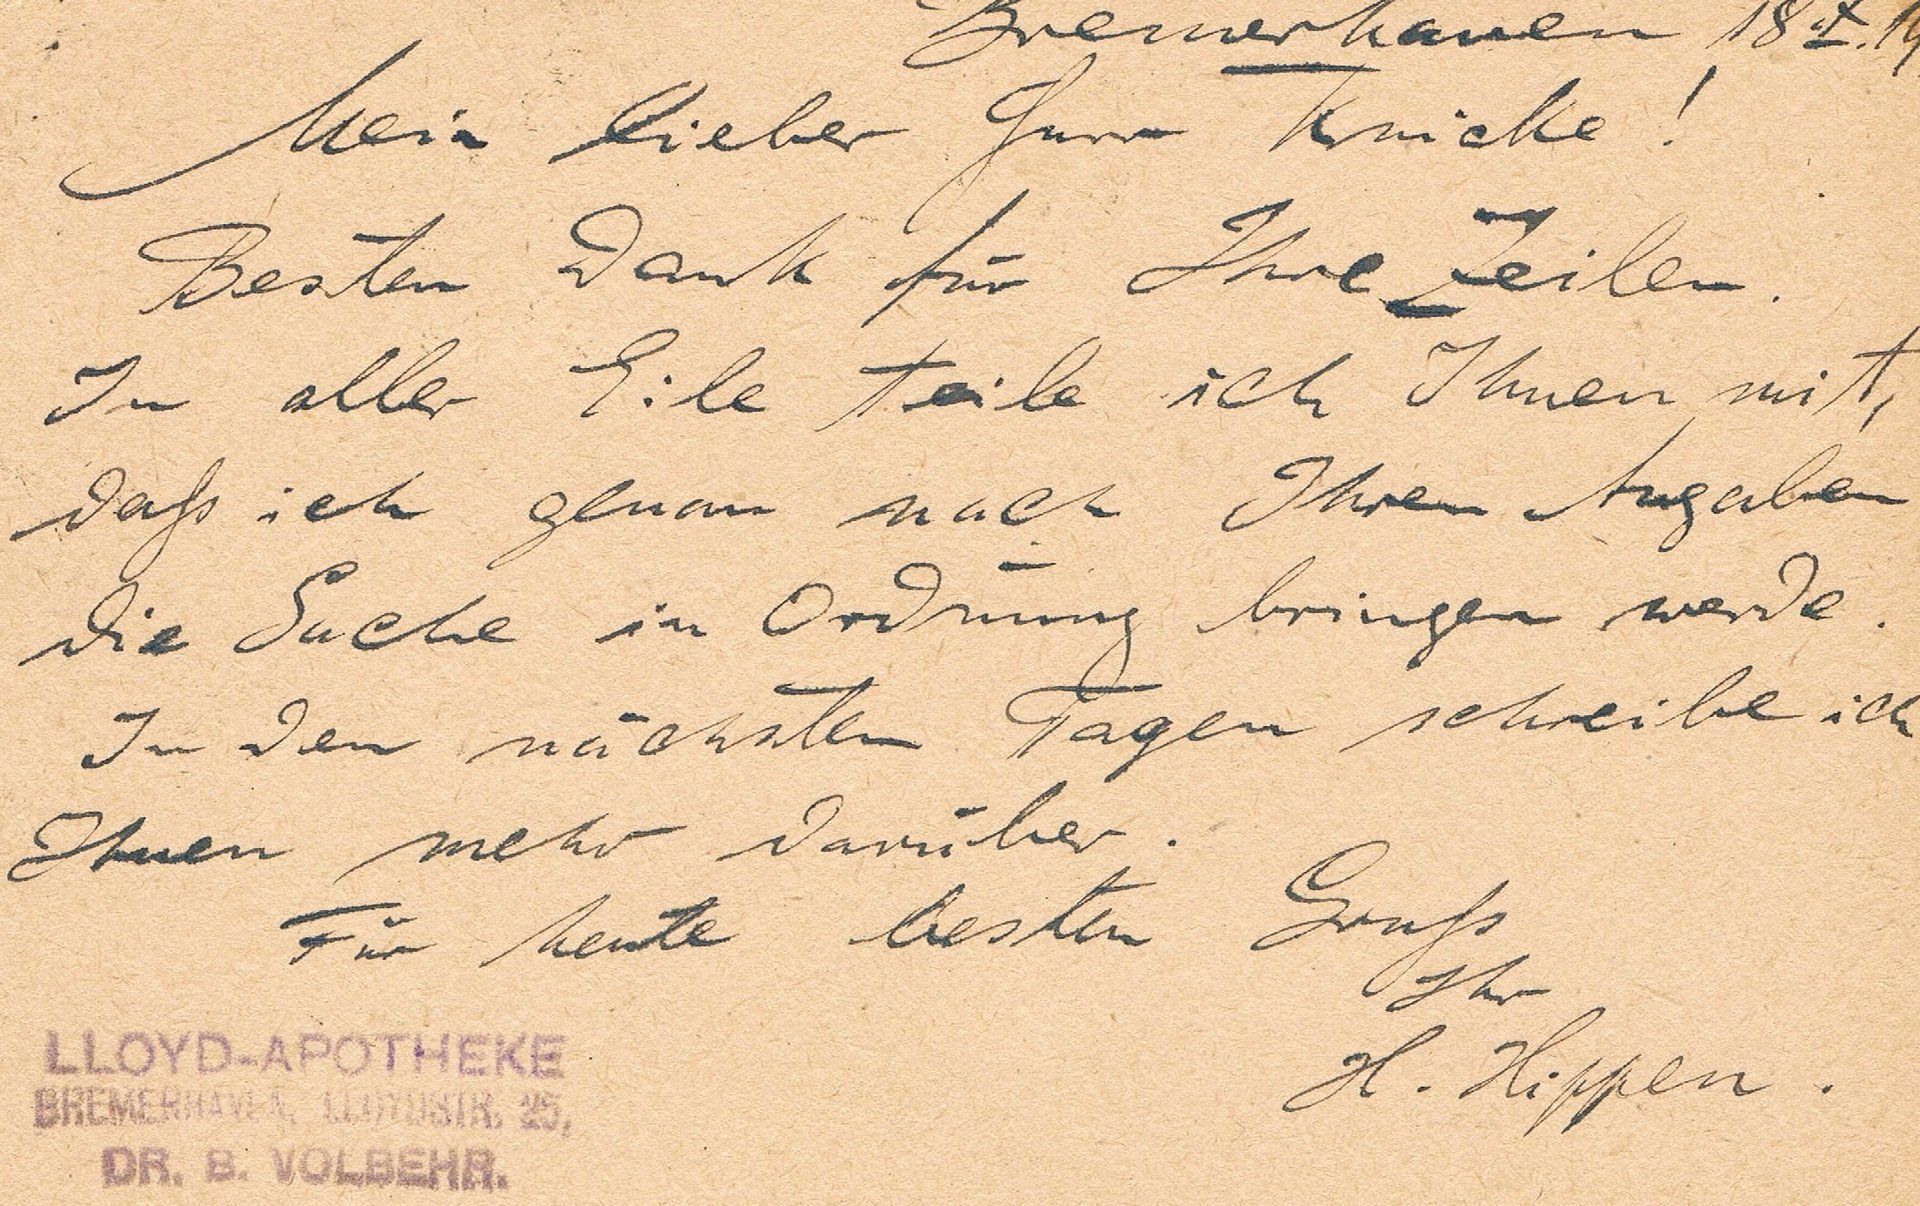 Bremerhaven 18.
Mein lieber Herr Knicke!
Besten Dank für Ihre Zeilen.
In aller Eile teile ich Ihnen mit,
daß ich genau nach Ihren Angaben
die Sache in Ordnung bringen werde.
In den nächsten Tagen schreibe ich
Ihnen mehr darüber.
Für heute besten Gruß
Ihr
H. Hippen.
LLOYD-APOTHEKE
BREMERHAVEN, LLOYDSTR. 25,
DR. B. VOLBEHR.